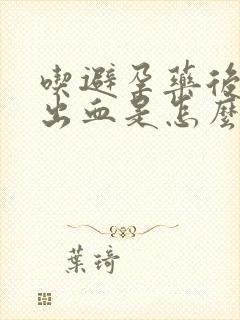 喫避孕藥後
出血是怎麼
葉琦